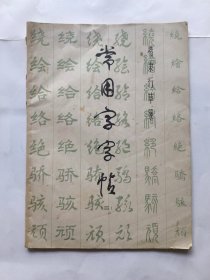 绕绘给络绝骄骇顽
绕绘给络绝骄骇顽
常用字字帖
绕绘给络绝骄骇顽
绕绘给络绝骄骇顽
绕绘给络绝骄骇顽